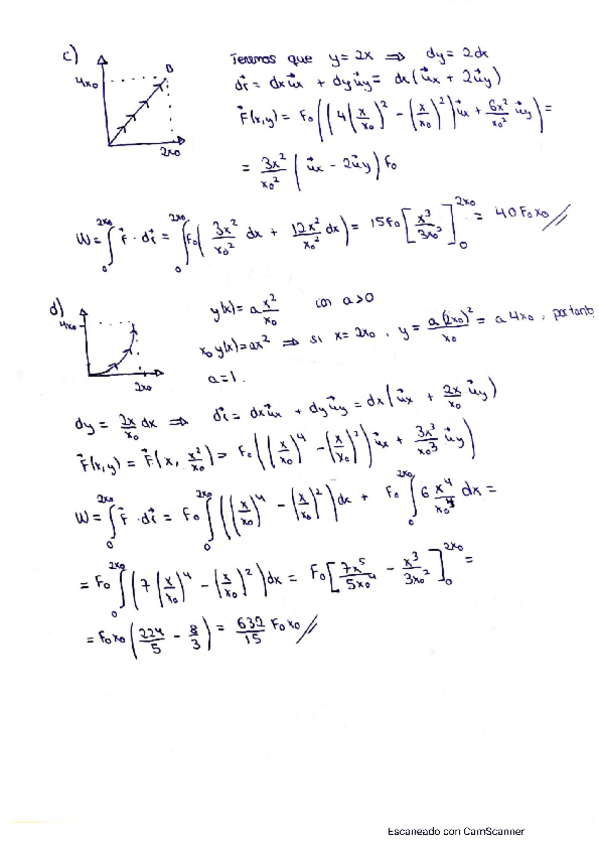 c)
4x₀
B
2x₀
Tenemos que y=2x ⇒ dy = 2dx
d\vec{r} = dx\vec{u}x + dy\vec{u}y = dx(\vec{u}x + 2\vec{u}y)
\vec{F}(x,y) = F₀((4(x/x₀)² - (x/x₀)²)\vec{u}x + 6x²/x₀² \vec{u}y) =
= 3x²/x₀² (\vec{u}x - 2\vec{u}y) F₀
W = ∫₀^{2x₀} \vec{F}·d\vec{r} = ∫₀^{2x₀} F₀(3x²/x₀² dx + 12x²/x₀² dx) = 15F₀[x³/3x₀²]₀^{2x₀} = 40F₀x₀ //
d)
4x₀
2x₀
y(x) = a x²/x₀ con a>0
x₀ y(x) = ax² ⇒ si x = 2x₀, y = a(2x₀)²/x₀ = a 4x₀, por tanto
a=1.
dy = 2x/x₀ dx ⇒ d\vec{r} = dx\vec{u}x + dy\vec{u}y = dx(\vec{u}x + 2x/x₀ \vec{u}y)
\vec{F}(x,y) = \vec{F}(x, x²/x₀) = F₀(((x/x₀)⁴ - (x/x₀)²)\vec{u}x + 3x³/x₀³ \vec{u}y)
W = ∫₀^{2x₀} \vec{F}·d\vec{r} = F₀ ∫₀^{2x₀} ((x/x₀)⁴ - (x/x₀)²)dx + F₀ ∫₀^{2x₀} 6 x⁴/x₀⁴ dx =
= F₀ ∫₀^{2x₀} (7(x/x₀)⁴ - (x/x₀)²)dx = F₀[7x⁵/5x₀⁴ - x³/3x₀²]₀^{2x₀} =
= F₀x₀(224/5 - 8/3) = 632/15 F₀x₀ //
Escaneado con CamScanner